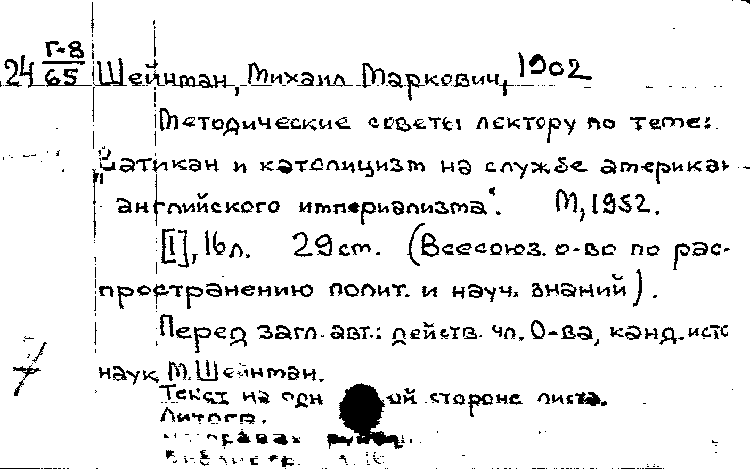 24 Г-8/65 Шейнман, Михаил Маркович, 1902
Методические советы лектору по теме:
„Ватикан и католицизм на службе американ
английского империализма". М, 1952.
[I], 16 л. 29 см. (Всесоюз. о-во по рас-
пространению полит. и науч. знаний).
Перед загл. авт.: действ. чл. О-ва, канд. исто
7 наук М. Шейнман.
Текст на одн ой стороне листа.
Литогр.
На правах
л. 16